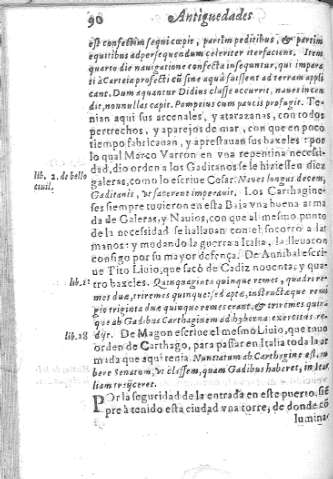 90 Antiguedades
est confectim sequi cœpit, partim peditibus, & partim
equitibus ad persequendum celeriter iter faciens. Item
quarto die navigatione confecta insequuntur, qui impera
ti à Carteia profecti cũ sine aqua fuissent ad terram appli
cant. Dum aquantur Didius classe occurrit, naues incen
dit, nonnullas capit. Pompeius cum paucis profugit. Te
nian aqui sus arcenales, y atarazanas, con todos
pertrechos, y aparejos de mar, con que en poco
tiempo fabricauan, y aprestauan sus baxeles: por
lo qual Marco Varron en vna repentina necessi-
dad, dio orden a los Gaditanos se le hiziessen diez
lib. 2. de bello
ciuil.
galeras, como lo escriue Cesar: Naues longas decem,
Gaditanis, vt facerent imperauit. Los Carthagine-
ses siempre tuuieron en esta Baia vna buena arma
da de Galeras, y Nauios, con que al mismo punto
de la necessidad se hallauan con el socorro a las
manos: y mudando la guerra a Italia, la lleuaron
consigo por su mayor defença. De Annibal escri-
ue Tito Liuio, que sacò de Cadiz nouenta, y qua-
lib. 21
tro baxeles. Quinquaginta quinque remes, quadri re-
mes duæ, triremes quinque; sed aptæ, instructæque remi
gio triginta duæ quinque remes erant, & triremes quinq̃
que ab Gadibus Carthaginem ad hyberna exercitus re-
lib. 28
dijt. De Magon escriue el mesmo Liuio, que tuuo
orden de Carthago, para passar en Italia toda la ar
mada que aqui tenia. Nuntiatum ab Carthagine est, iu
bere Senatum, vt classem, quam Gadibus haberet, in Ita
liam traijceret.
POr la seguridad de la entrada en este puerto, siẽ
pre à tenido esta ciudad vna torre, de donde cõ
lumina-